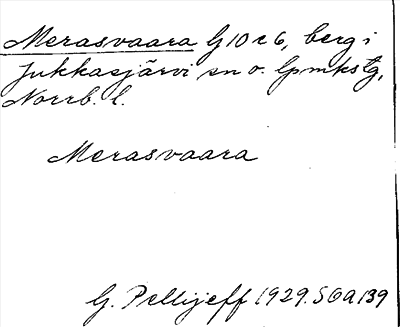 Merasvaara G10c6, berg i
Jukkasjärvi sn o. lpmkstg,
Norrb. l.
Merasvaara
G. Pellijeff 1929. SOA 139